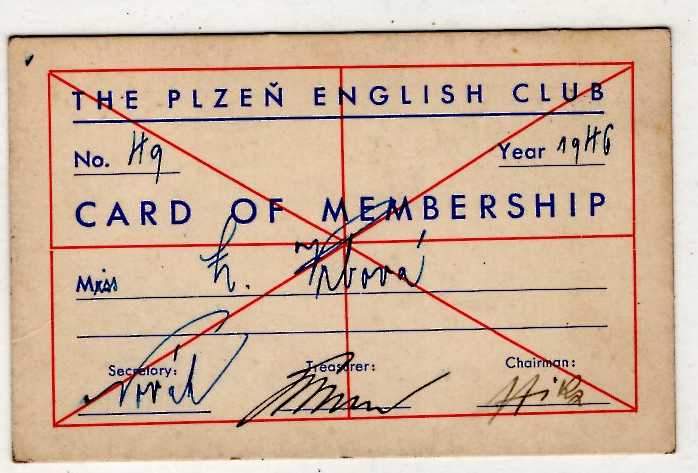 THE PLZEŇ ENGLISH CLUB
No. 49 Year 1946
CARD OF MEMBERSHIP
Miss
Secretary: Treasurer: Chairman:
Novák